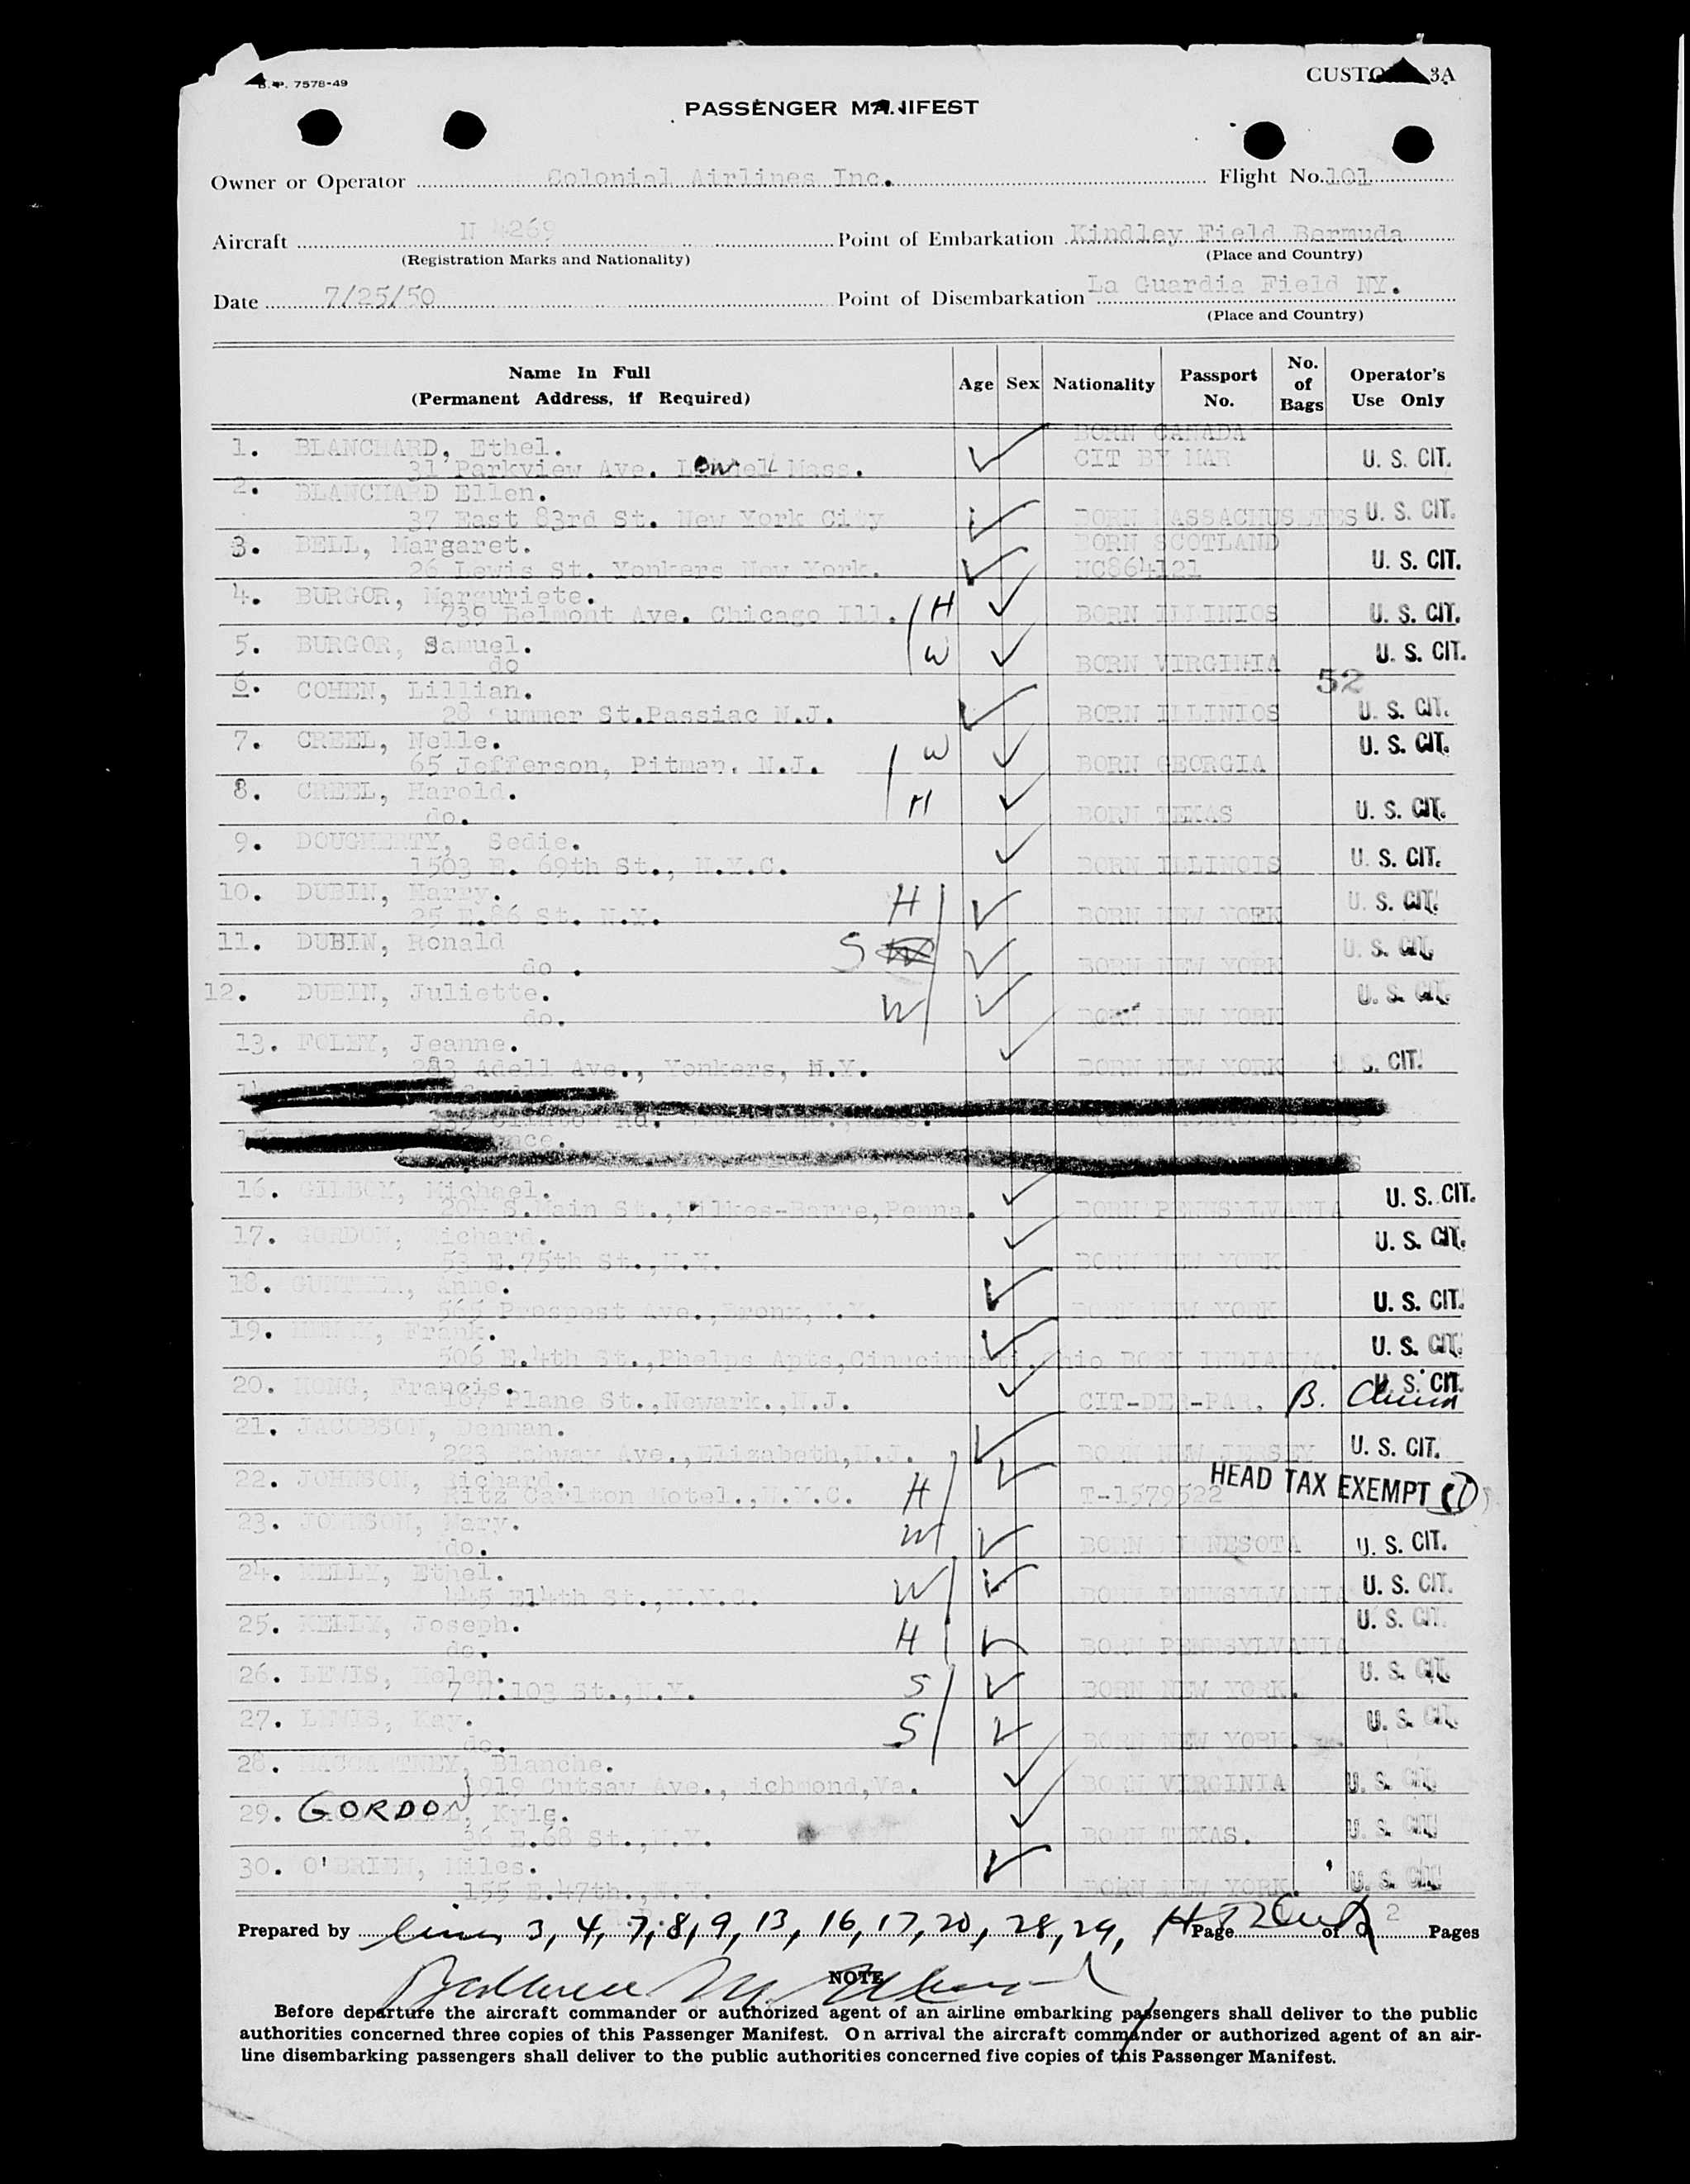 B.P. 7578-49
CUSTOMS 3A
PASSENGER MANIFEST
Owner or Operator Colonial Airlines Inc. Flight No. 101
Aircraft N 4269 Point of Embarkation Kindley Field Bermuda
(Registration Marks and Nationality) (Place and Country)
Date 7/25/50 Point of Disembarkation La Guardia Field NY.
(Place and Country)
Name In Full Age Sex Nationality Passport No. No. of Bags Operator's Use Only
(Permanent Address, if Required)
1. BLANCHARD, Ethel. BORN CANADA
31 Parkview Ave. Mass. CIT BY MAR U. S. CIT.
2. BLANCHARD Ellen.
37 East 83rd St. New York City BORN MASSACHUSETTES U. S. CIT.
3. BELL, Margaret. BORN SCOTLAND
26 Lewis St. Yonkers New York. NC864121 U. S. CIT.
4. BURGOR, Marguriete.
739 Belmont Ave. Chicago Ill. H BORN ILLINIOS U. S. CIT.
5. BURGOR, Samuel.
do W BORN VIRGINIA U. S. CIT.
52
6. COHEN, Lillian.
28 Summer St.Passiac N.J. BORN ILLINIOS U. S. CIT.
7. CREEL, Nelle. W U. S. CIT.
65 Jefferson, Pitman. N.J. BORN GEORGIA
8. CREEL, Harold. H
do. BORN TEXAS U. S. CIT.
9. DOUGHERTY, Sedie.
1503 E. 69th St., N.Y.C. BORN ILLINOIS U. S. CIT.
10. DUBIN, Harry. H
25 E.86 St. N.Y. BORN NEW YORK U. S. CIT.
11. DUBIN, Ronald S
do . BORN NEW YORK U. S. CIT.
12. DUBIN, Juliette. W
do. BORN NEW YORK U. S. CIT.
13. FOLEY, Jeanne.
Adell Ave., Yonkers, N.Y. BORN NEW YORK U. S. CIT.
14
Rd.
15
16. GILBOY, Michael.
204 S.Main St.,Wilkes-Barre,Penna. BORN PENNSYLVANIA U. S. CIT.
17. GORDON, Richard.
53 E.75th St.,N.Y. BORN NEW YORK U. S. CIT.
18. GUNTHER, Anne.
565 Prospest Ave.,Bronx,N.Y. BORN NEW YORK U. S. CIT.
19. Frank.
506 E.4th St.,Phelps Apts,Cincinneti,Ohio BORN INDIANNA. U. S. CIT.
20. HONG, Francis. U. S. CIT.
187 Plane St.,Newark.,N.J. CIT-DER-PAR. B. China
21. JACOBSON, Denman.
223 Ave.,Elizabeth,N.J. BORN NEW JERSEY U. S. CIT.
22. JOHNSON, Richard. HEAD TAX EXEMPT
Ritz Carlton Hotel.,N.Y.C. H T-1579522
23. JOHNSON, Mary. W
do. BORN MINNESOTA U. S. CIT.
24. KELLY, Ethel.
445 E14th St.,N.Y.C. W BORN PENNSYLVANIA U. S. CIT.
25. KELLY, Joseph. U. S. CIT.
do. H BORN PENNSYLVANIA
26. LEWIS, Helen.
7 W.103 St.,N.Y. S BORN NEW YORK. U. S. CIT.
27. LEWIS, Kay.
do. S BORN NEW YORK. U. S. CIT.
28. MACCARTNEY, Blanche.
1919 Cutsaw Ave., Richmond,Va. BORN VIRGINIA U. S. CIT.
29. GORDON, Kyle.
36 E.68 St.,N.Y. BORN TEXAS. U. S. CIT.
30. O'BRIEN, Miles.
155 E.47th.,N.Y. BORN NEW YORK. U. S. CIT.
Prepared by lines 3, 4, 7, 8, 9, 13, 16, 17, 20, 28, 29, Page of 2 Pages
NOTE
Before departure the aircraft commander or authorized agent of an airline embarking passengers shall deliver to the public
authorities concerned three copies of this Passenger Manifest. On arrival the aircraft commander or authorized agent of an air-
line disembarking passengers shall deliver to the public authorities concerned five copies of this Passenger Manifest.